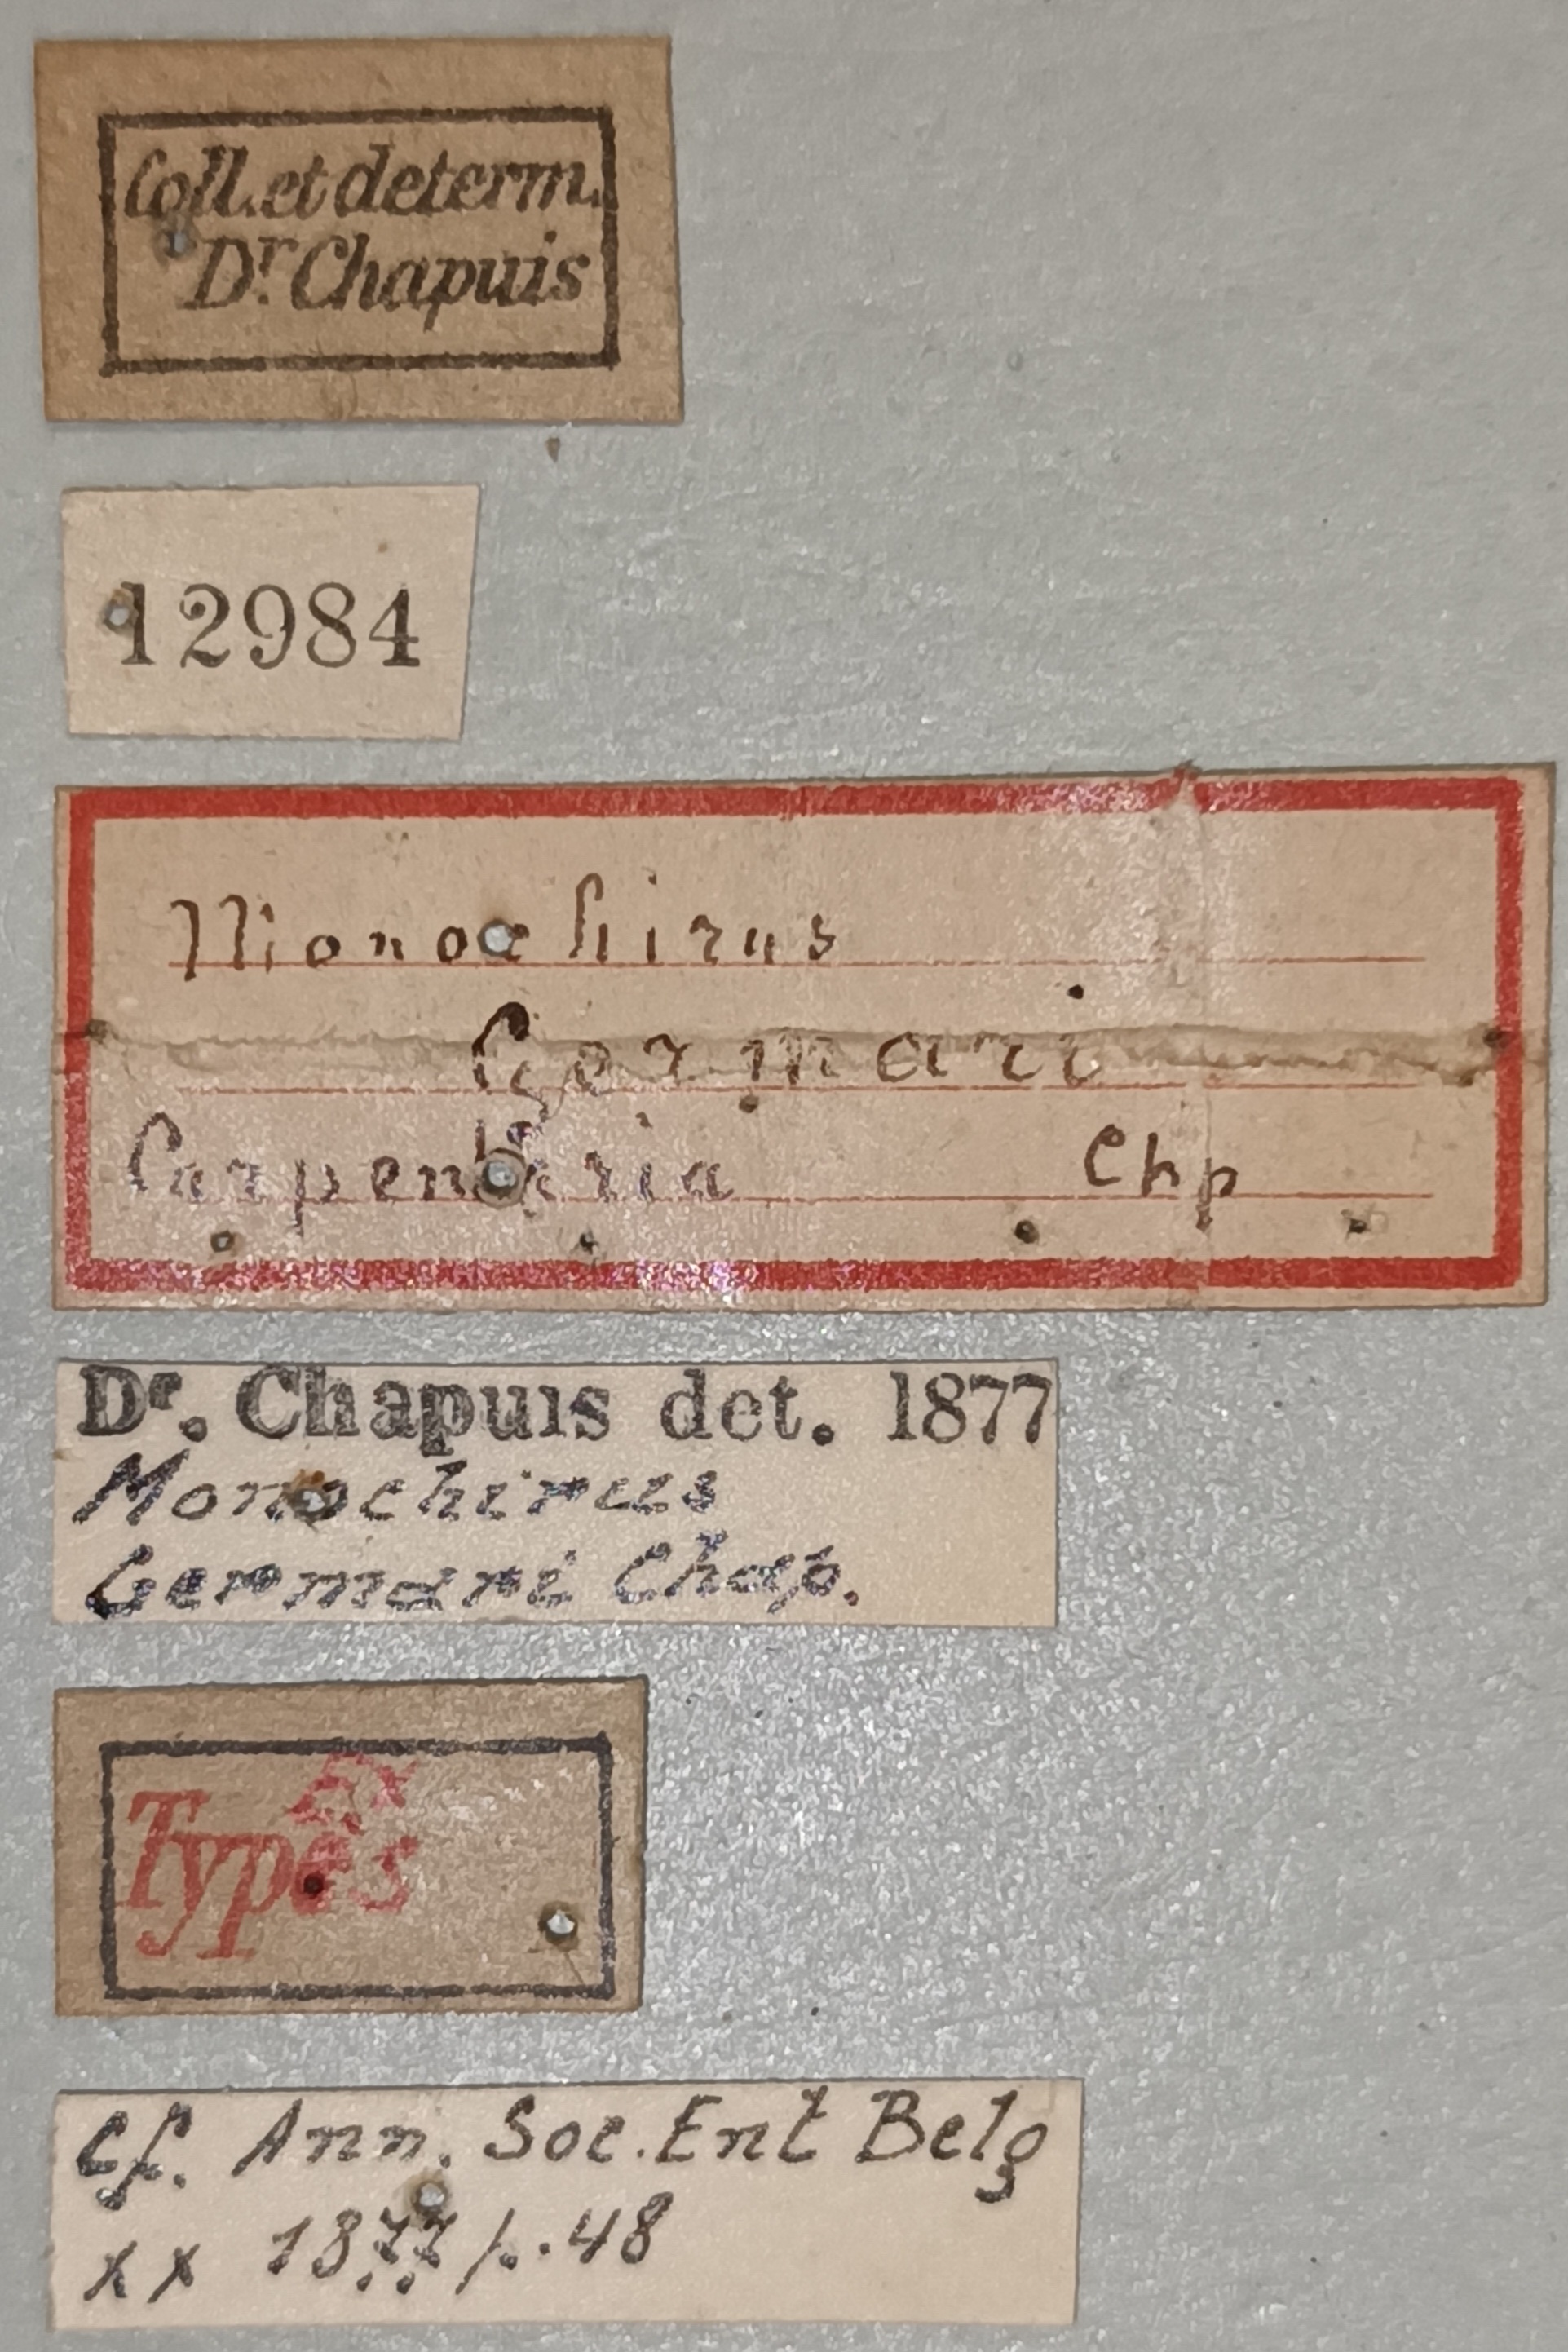 Coll. et determ.
Dr. Chapuis
12984
Monochirus
Germari
Carpentaria Chp
Dr. Chapuis det. 1877
Monochirus
Germari Chap.
Ex
Types
Cf. Ann. Soc. Ent Belg
XX 1877 p. 48